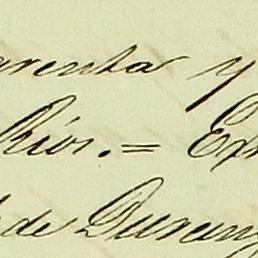 arenta y
Rios.= Ex
de Durang